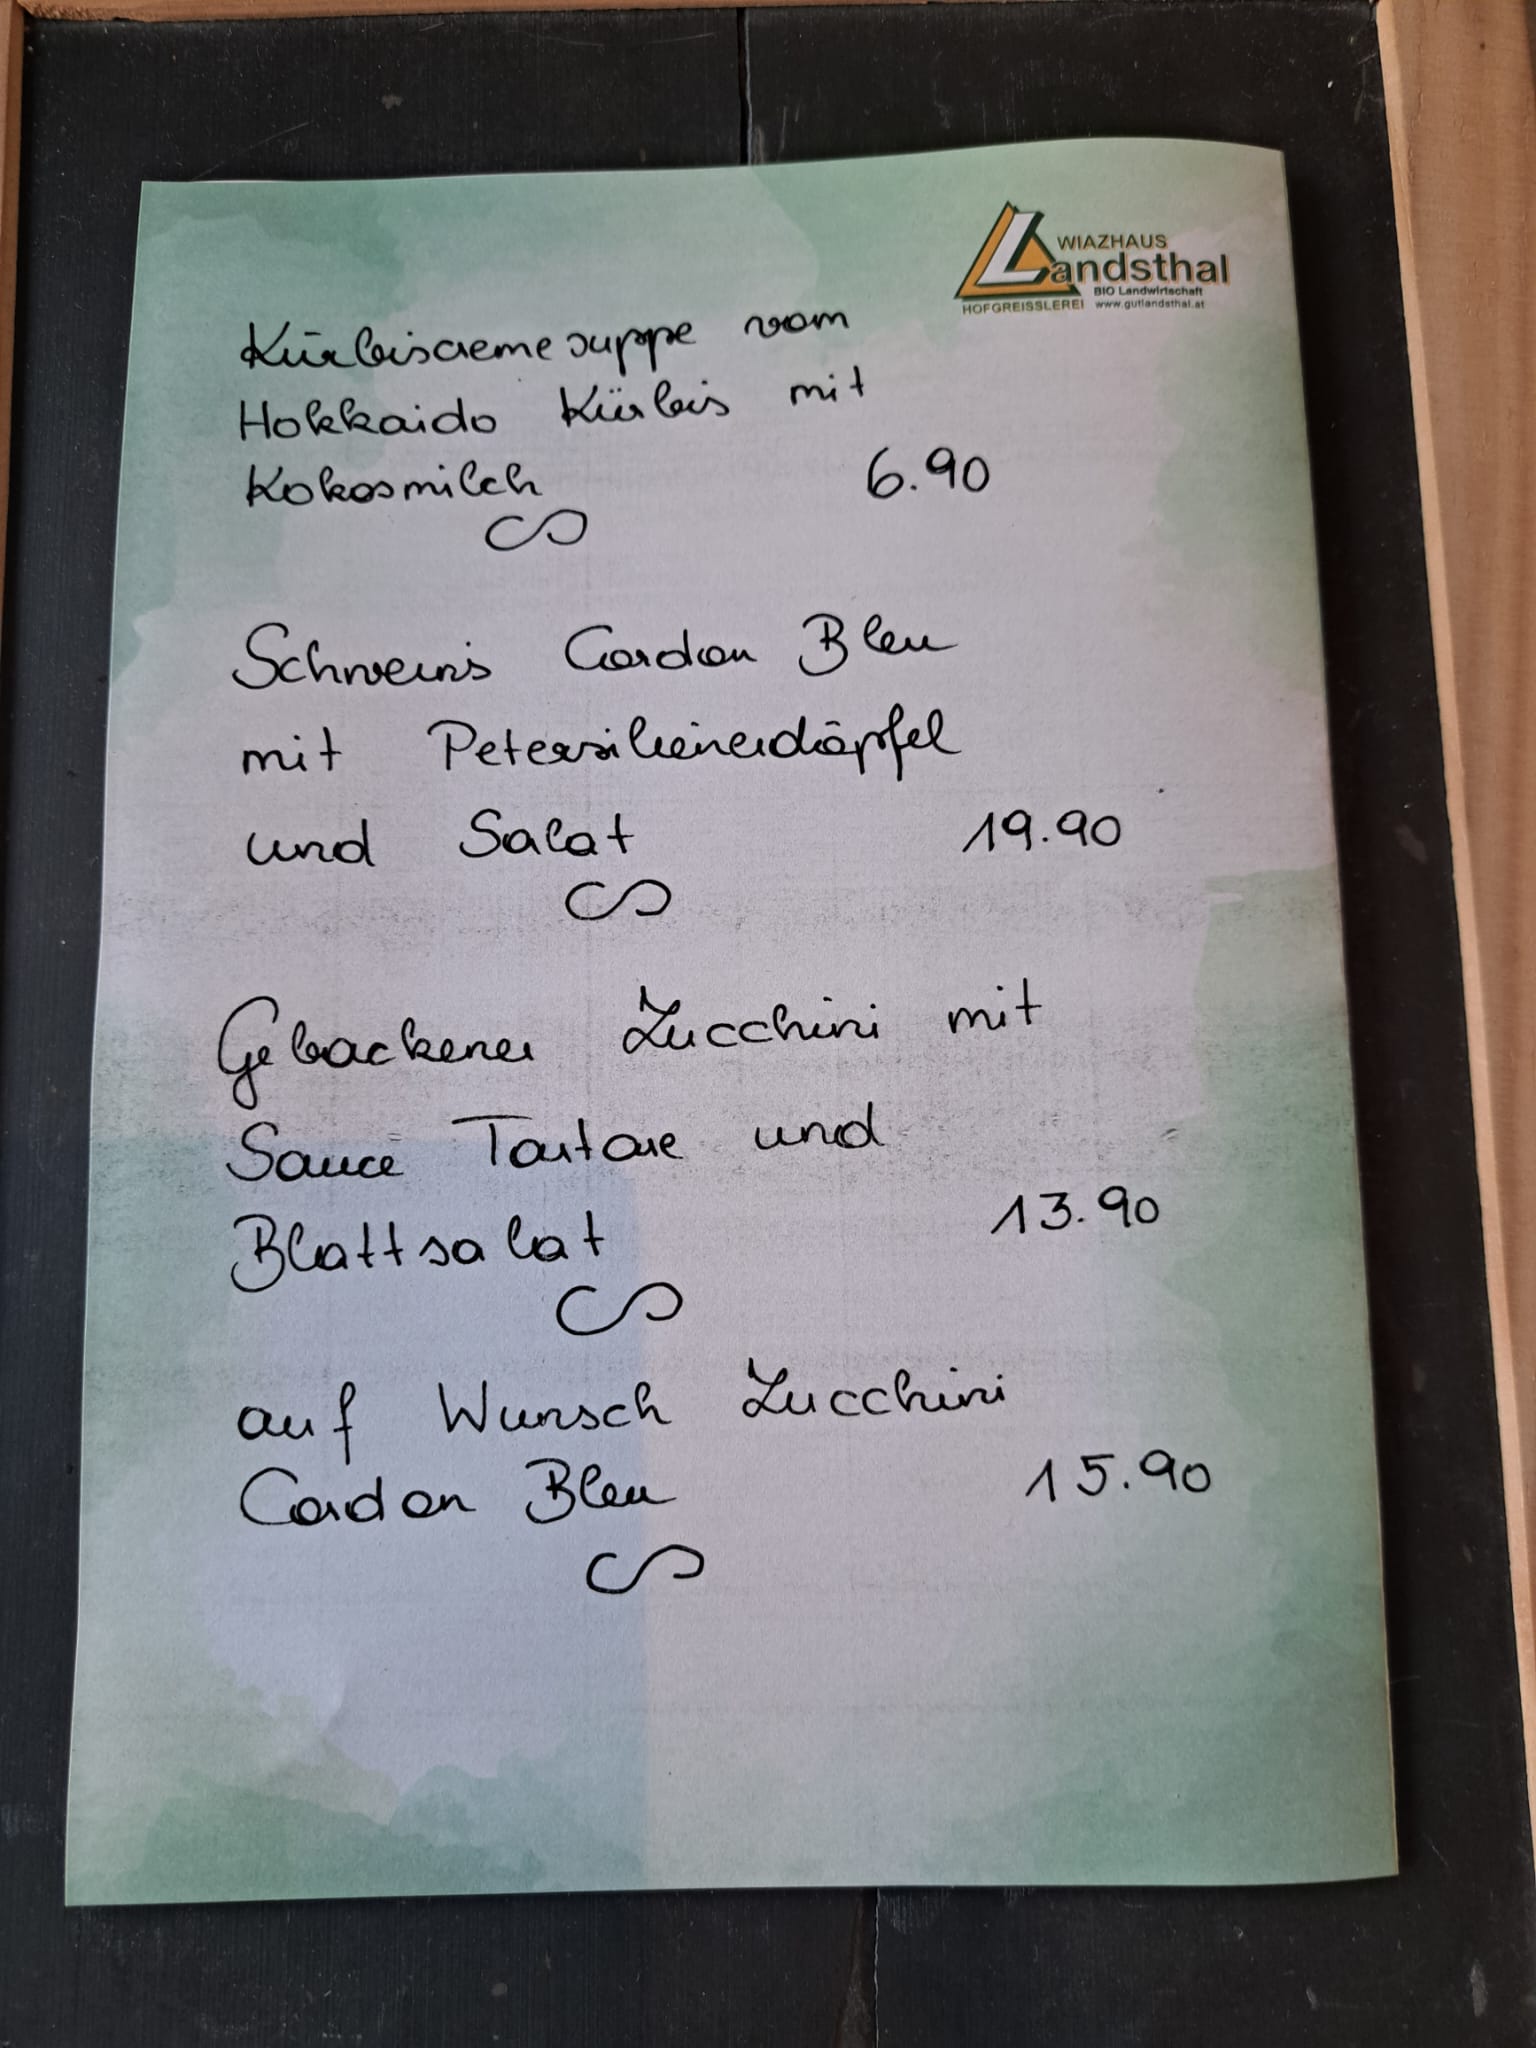 WIAZHAUS
Landsthal
BIO Landwirtschaft
HOFGREISSLEREI www.gutlandsthal.at
Kürbiscremesuppe vom
Hokkaido Kürbis mit
Kokosmilch 6.90
Schweins Cordon Bleu
mit Petersilienerdäpfel
und Salat 19.90
Gebackener Zucchini mit
Sauce Tartare und
Blattsalat 13.90
auf Wunsch Zucchini
Cordon Bleu 15.90